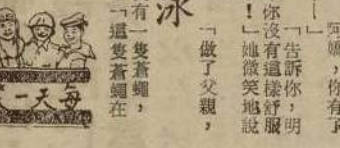 阿嬌，你有了
「告訴你，明
你沒有這樣舒服
！」她微笑地說
「做了父親，
冰
有一隻蒼蠅，
「這隻蒼蠅在
每天一笑